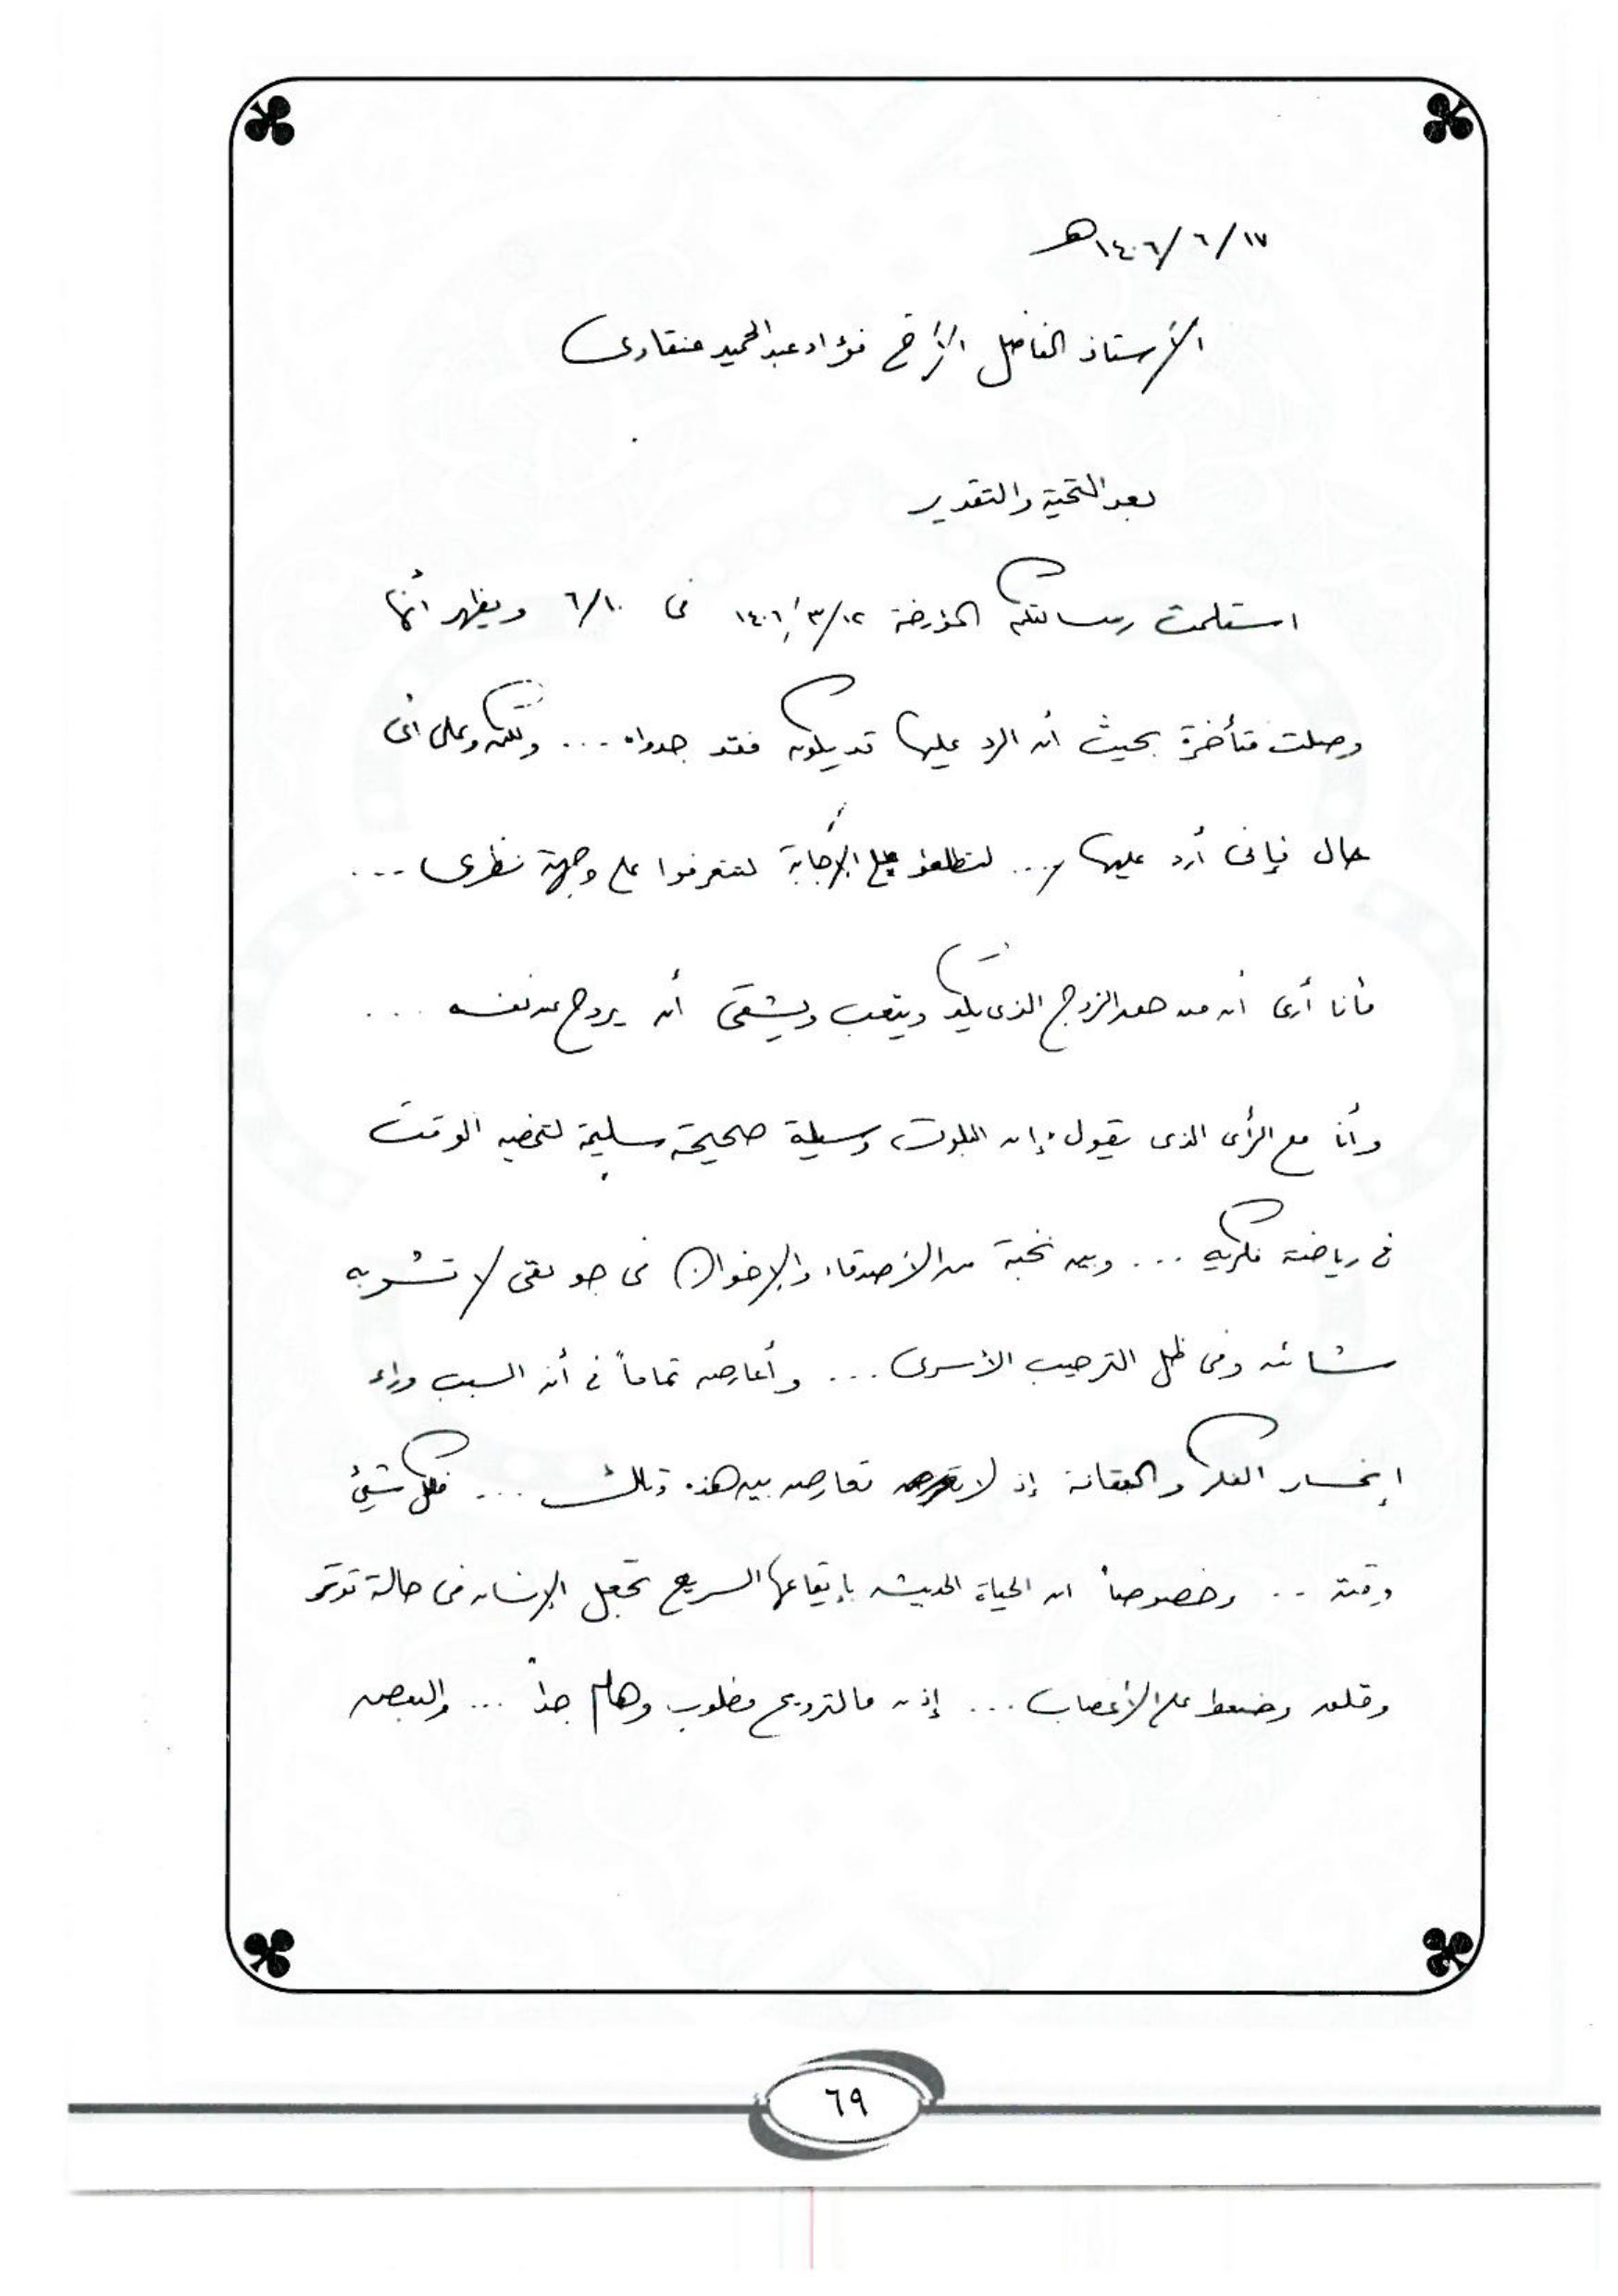 ١٧/ ٦ /١٤٠٦هـ
الأستاذ الفاضل الأخ فؤاد عبدالحميد عنقاوى
بعد التحية والتقدير
استلمت رسالتكم المؤرخة ١٤٠٦/٣/١٢ فى ٦/١٠ ويظهر أنها
وصلت متأخرة بحيث أن الرد عليها قد يكون فقد جدواه ... ولكن وعلى أى
حال فإنى أرد عليها ... لتطلعوا على الإجابة لتتعرفوا على وجهة نظرى ...
فأنا أرى أن من حق الزوج الذى يكد ويتعب ويشقى أن يروح عن نفسه ...
وأنا مع الرأى الذى يقول: إن البلوت وسيلة صحيحة سليمة لتمضية الوقت
فى رياضة فكرية ... وبين نخبة من الأصدقاء والإخوان فى جو نقى لا تشوبه
شائبة وفى ظل الترحيب الأسرى ... وأعارض تماماً فى أن السبب وراء
إنحسار الفكر والثقافة إذ لا تعارض بين هذه وتلك ... فلكل شيئ
وقته .. وخصوصاً ان الحياة الحديثة بإيقاعها السريع تجعل الإنسان فى حالة توتر
وقلق وضغط على الأعصاب ... إذن فالترويح مطلوب وهام جداً ... والبعض
٦٩